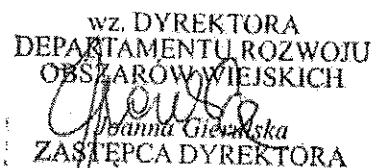 wz. DYREKTORA
DEPARTAMENTU ROZWOJU
OBSZARÓW WIEJSKICH
Joanna
ZASTĘPCA DYREKTORA